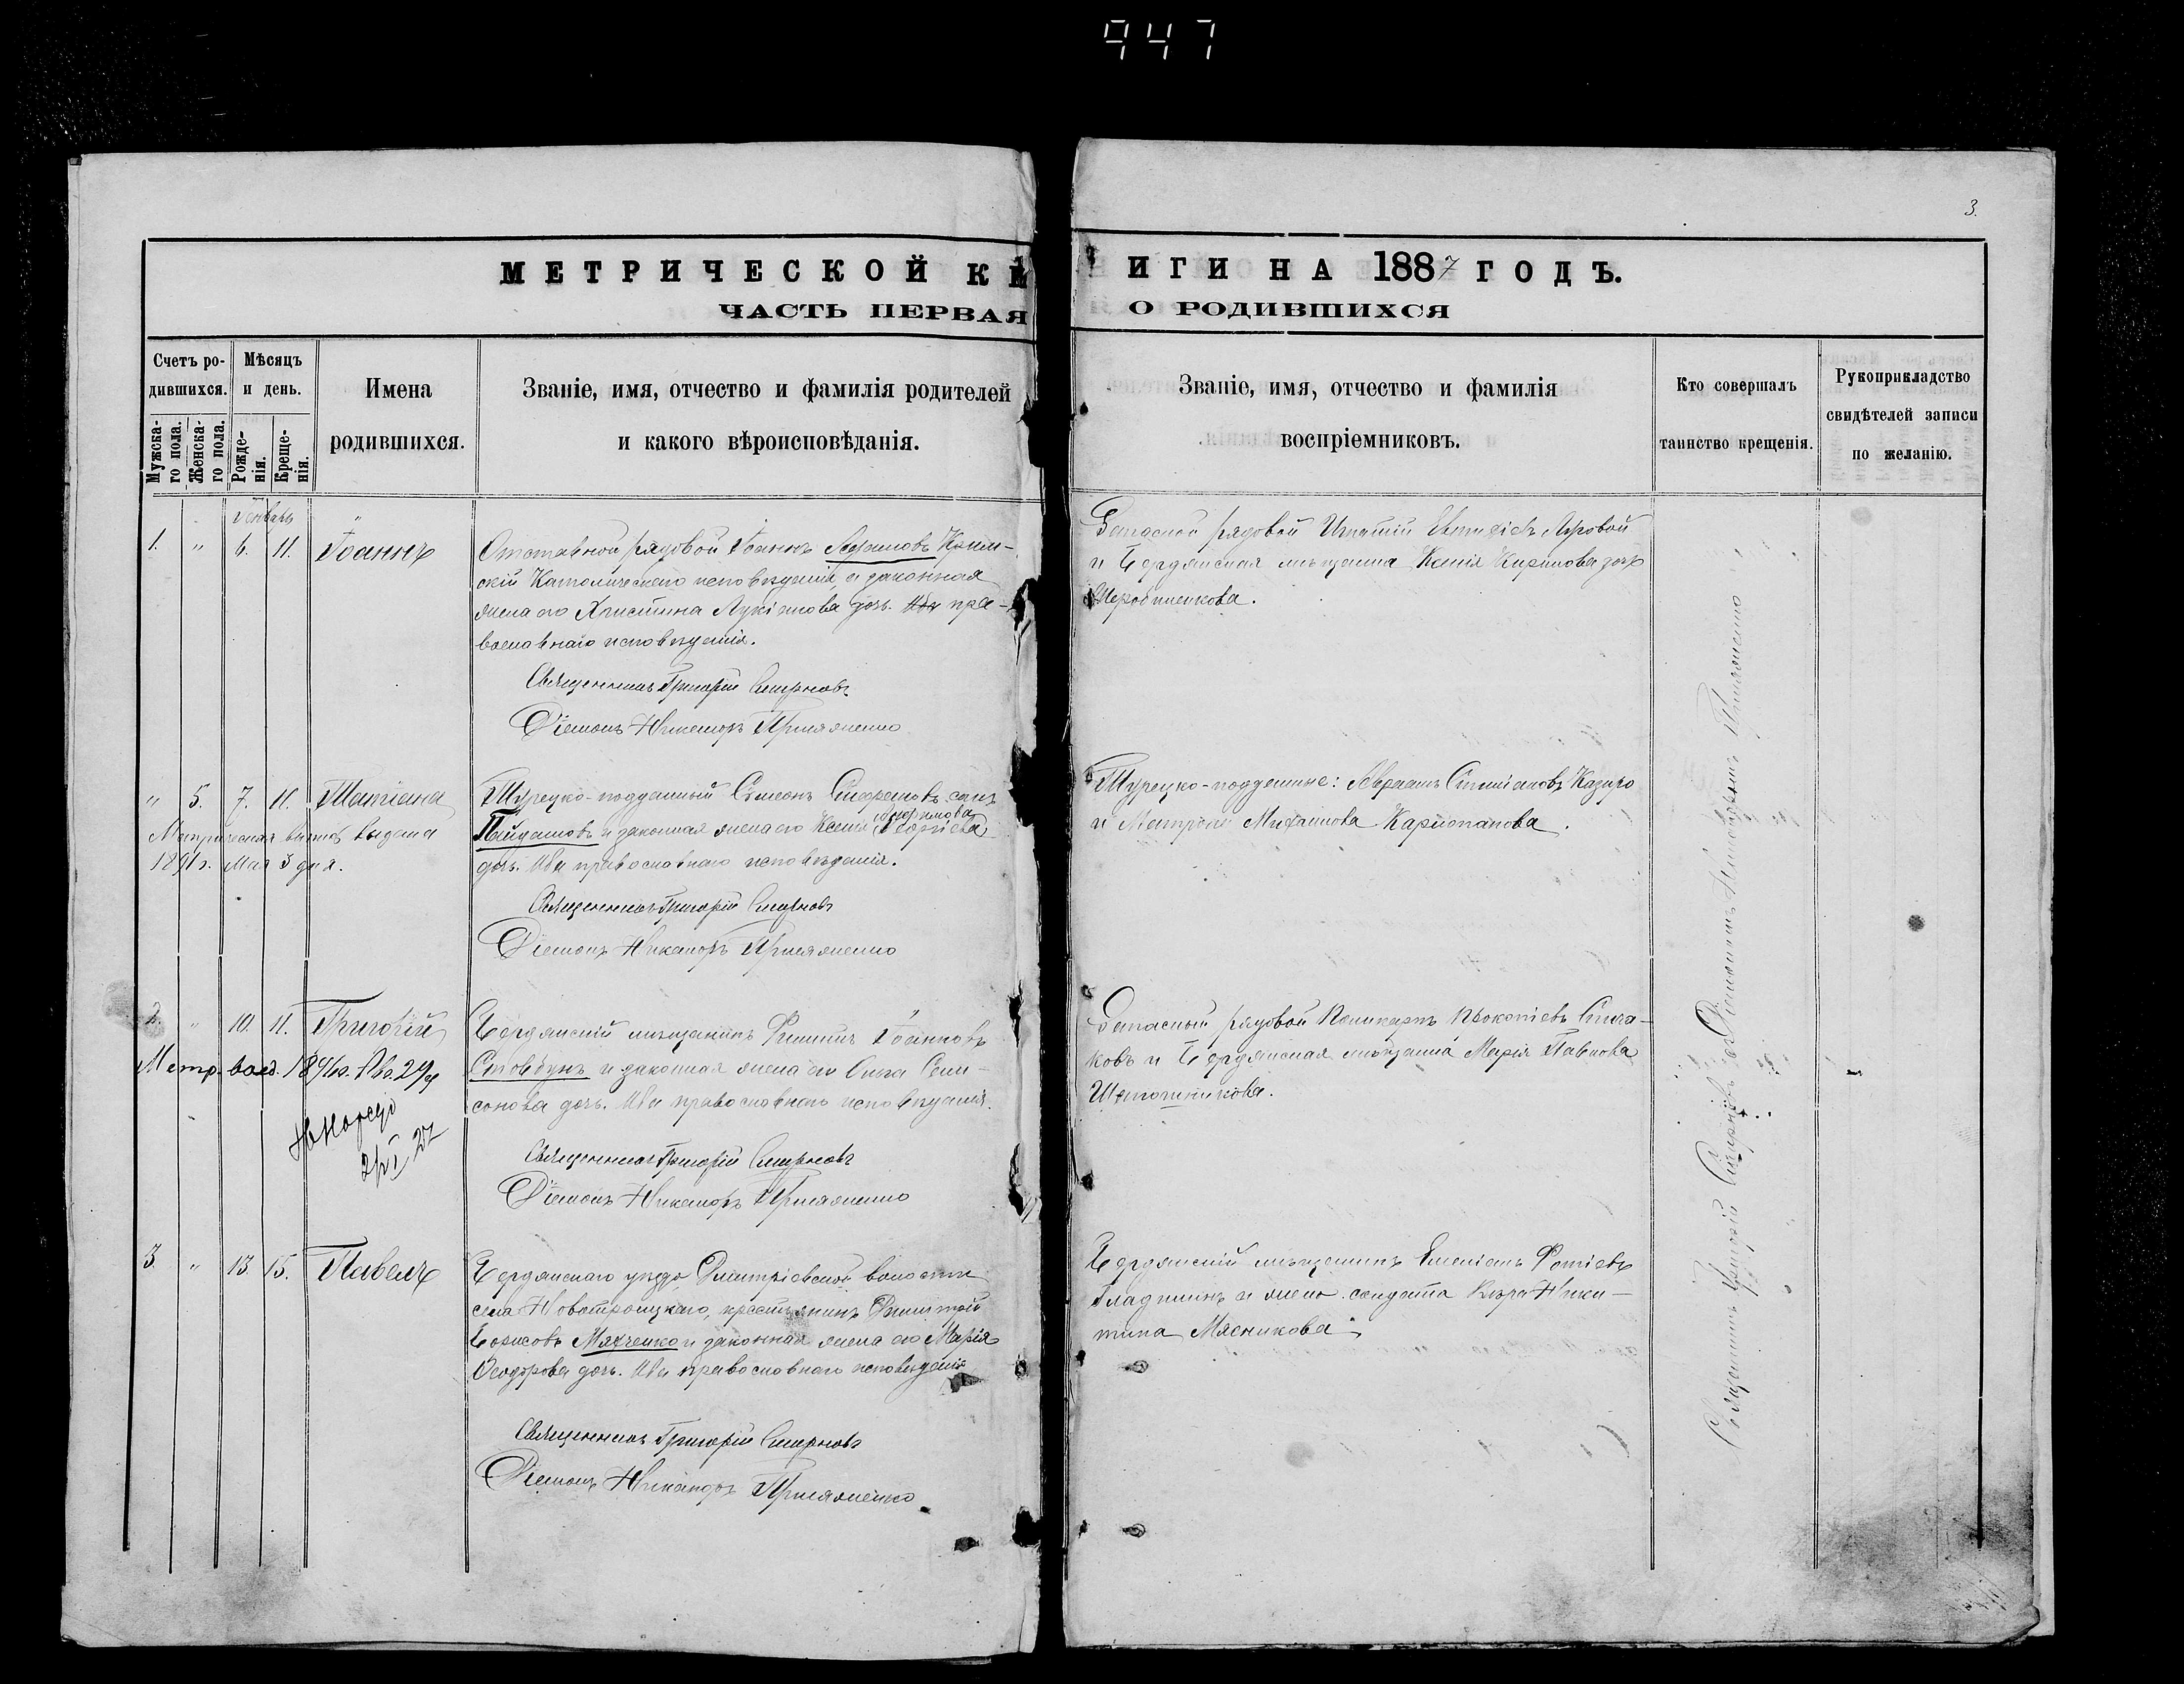 947
3.
МЕТРИЧЕСКОЙ КНИГИ НА 1887 ГОДЪ.
ЧАСТЬ ПЕРВАЯ О РОДИВШИХСЯ
Счетъ родившихся.
Мужскаго пола.
Женскаго пола.
Мѣсяцъ и день.
Рожденія.
Крещенія.
Имена
родившихся.
Званіе, имя, отчество и фамилія родителей
и какого вѣроисповѣданія.
Званіе, имя, отчество и фамилія
воспріемниковъ.
Кто совершалъ
таинство крещенія.
Рукоприкладство
свидѣтелей записи
по желанію.
январь
1. " 6. 11. Іоаннъ
Отставной рядовой Іоаннъ
скій Католическаго исповѣданія и законная
жена его Христина Лукіанова дочь. пра-
вославнаго исповѣданія.
Священникъ Григорій Смирновъ
Діаконъ Никаноръ
Запасной рядовой Игнатій Яровой
и Бердянская мѣщанка Ксенія Кирилова дочь
" 5. 7. 11. Татіана
Метрическая выпись выдана
1891 г. Мая 3 дня.
Турецко-подданный Симеонъ Стефановъ сынъ
и законная жена его Ксенія Георгіева
дочь. Оба православнаго исповѣданія.
Священникъ Григорій Смирновъ
Діаконъ Никаноръ
Турецко-подданные: Авраамъ
и Матрона Михаилова
2. " 10. 11. Григорій
Метр. выд.
Бердянскій мѣщанинъ Филиппъ Іоанновъ
Стовбунъ и законная жена его Ольга Сам-
сонова дочь. Оба православнаго исповѣданія.
Священникъ Григорій Смирновъ
Діаконъ Никаноръ
Запасный рядовой Поликарпъ Прокопіевъ
ковъ и Бердянская мѣщанка Марія Павлова
3. " 13. 15. Павелъ
Бердянскаго уѣзда Дмитріевской волости
села Новотроицкаго, крестьянинъ Димитрій
Борисовъ и законная жена его Марія
Ѳеодорова дочь. Оба православнаго исповѣданія
Священникъ Григорій Смирновъ
Діаконъ Никаноръ
Бердянскій мѣщанинъ Емеліанъ Фотіевъ
Гладилинъ и жена солдата Вѣра Ники-
тина Мясникова
Священникъ Григорій Смирновъ съ Діакономъ Никаноромъ